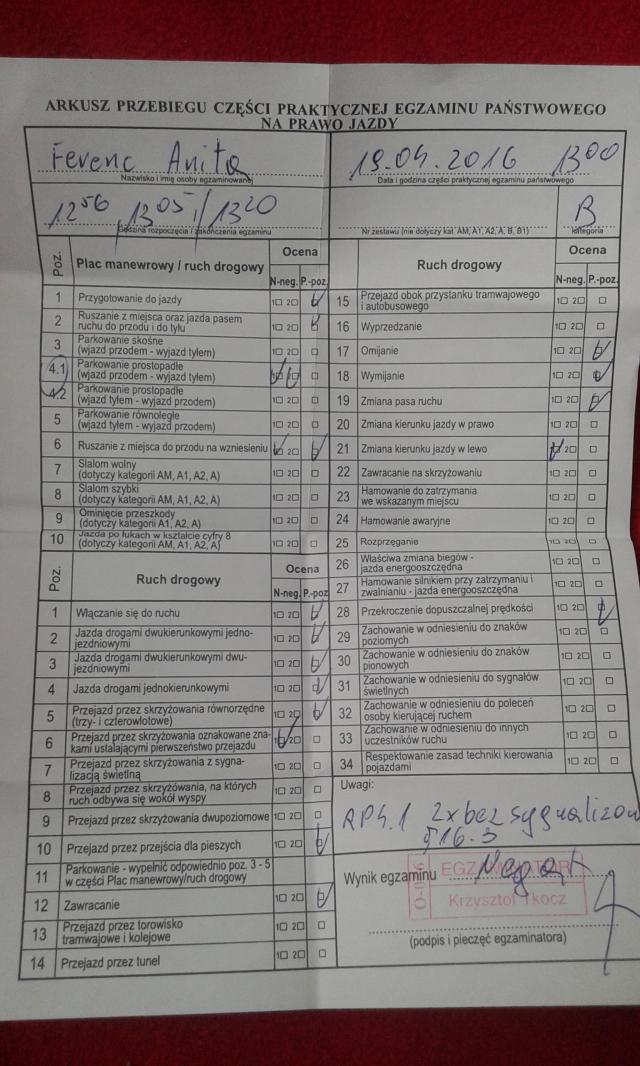 ARKUSZ PRZEBIEGU CZĘŚCI PRAKTYCZNEJ EGZAMINU PAŃSTWOWEGO
NA PRAWO JAZDY
Ferenc Anita
Nazwisko i imię osoby egzaminowanej
19.04.2016 13 00
Data i godzina części praktycznej egzaminu państwowego
12 56 13 05 / 13 20
Godzina rozpoczęcia / zakończenia egzaminu
Nr zestawu (nie dotyczy kat. AM, A1, A2, A, B, B1)
B
kategoria
Poz. Plac manewrowy / ruch drogowy Ocena
N-neg. P.-poz.
1 Przygotowanie do jazdy 1□ 2□ □
2 Ruszanie z miejsca oraz jazda pasem
ruchu do przodu i do tyłu 1□ 2□ □
3 Parkowanie skośne
(wjazd przodem - wyjazd tyłem) 1□ 2□ □
4.1 Parkowanie prostopadłe
(wjazd przodem - wyjazd tyłem) □
4.2 Parkowanie prostopadłe
(wjazd tyłem - wyjazd przodem) 1□ 2□ □
5 Parkowanie równoległe
(wjazd tyłem - wyjazd przodem) 1□ 2□ □
6 Ruszanie z miejsca do przodu na wzniesieniu 2□
7 Slalom wolny
(dotyczy kategorii AM, A1, A2, A) 1□ 2□ □
8 Slalom szybki
(dotyczy kategorii AM, A1, A2, A) 1□ 2□ □
9 Ominięcie przeszkody
(dotyczy kategorii A1, A2, A) 1□ 2□ □
10 Jazda po łukach w kształcie cyfry 8
(dotyczy kategorii AM, A1, A2, A) 1□ 2□ □
Poz. Ruch drogowy Ocena
N-neg. P.-poz
1 Włączanie się do ruchu 1□ 2□ □
2 Jazda drogami dwukierunkowymi jedno-
jezdniowymi 1□ 2□ □
3 Jazda drogami dwukierunkowymi dwu-
jezdniowymi 1□ 2□ □
4 Jazda drogami jednokierunkowymi 1□ 2□ □
5 Przejazd przez skrzyżowania równorzędne
(trzy- i czterowlotowe) 1□ 2□ □
6 Przejazd przez skrzyżowania oznakowane zna-
kami ustalającymi pierwszeństwo przejazdu 1□ 2□ □
7 Przejazd przez skrzyżowania z sygna-
lizacją świetlną 1□ 2□ □
8 Przejazd przez skrzyżowania, na których
ruch odbywa się wokół wyspy 1□ 2□ □
9 Przejazd przez skrzyżowania dwupoziomowe 1□ 2□ □
10 Przejazd przez przejścia dla pieszych 1□ 2□ □
11 Parkowanie - wypełnić odpowiednio poz. 3 - 5
w części Plac manewrowy/ruch drogowy
12 Zawracanie 1□ 2□ □
13 Przejazd przez torowisko
tramwajowe i kolejowe 1□ 2□ □
14 Przejazd przez tunel 1□ 2□ □
Ruch drogowy Ocena
N-neg. P.-poz.
15 Przejazd obok przystanku tramwajowego
i autobusowego 1□ 2□ □
16 Wyprzedzanie 1□ 2□ □
17 Omijanie 1□ 2□ □
18 Wymijanie 1□ 2□ □
19 Zmiana pasa ruchu 1□ 2□ □
20 Zmiana kierunku jazdy w prawo 1□ 2□ □
21 Zmiana kierunku jazdy w lewo 2□ □
22 Zawracanie na skrzyżowaniu 1□ 2□ □
23 Hamowanie do zatrzymania
we wskazanym miejscu 1□ 2□ □
24 Hamowanie awaryjne 1□ 2□ □
25 Rozprzęganie 1□ 2□ □
26 Właściwa zmiana biegów -
jazda energooszczędna 1□ 2□ □
27 Hamowanie silnikiem przy zatrzymaniu i
zwalnianiu - jazda energooszczędna 1□ 2□ □
28 Przekroczenie dopuszczalnej prędkości 1□ 2□ □
29 Zachowanie w odniesieniu do znaków
poziomych 1□ 2□ □
30 Zachowanie w odniesieniu do znaków
pionowych 1□ 2□ □
31 Zachowanie w odniesieniu do sygnałów
świetlnych 1□ 2□ □
32 Zachowanie w odniesieniu do poleceń
osoby kierującej ruchem 1□ 2□ □
33 Zachowanie w odniesieniu do innych
uczestników ruchu 1□ 2□ □
34 Respektowanie zasad techniki kierowania
pojazdami 1□ 2□ □
Uwagi:
2x bez sygnalizow
§16.3
Wynik egzaminu Negat
EGZAMINATOR
Krzysztof Tkocz
(podpis i pieczęć egzaminatora)